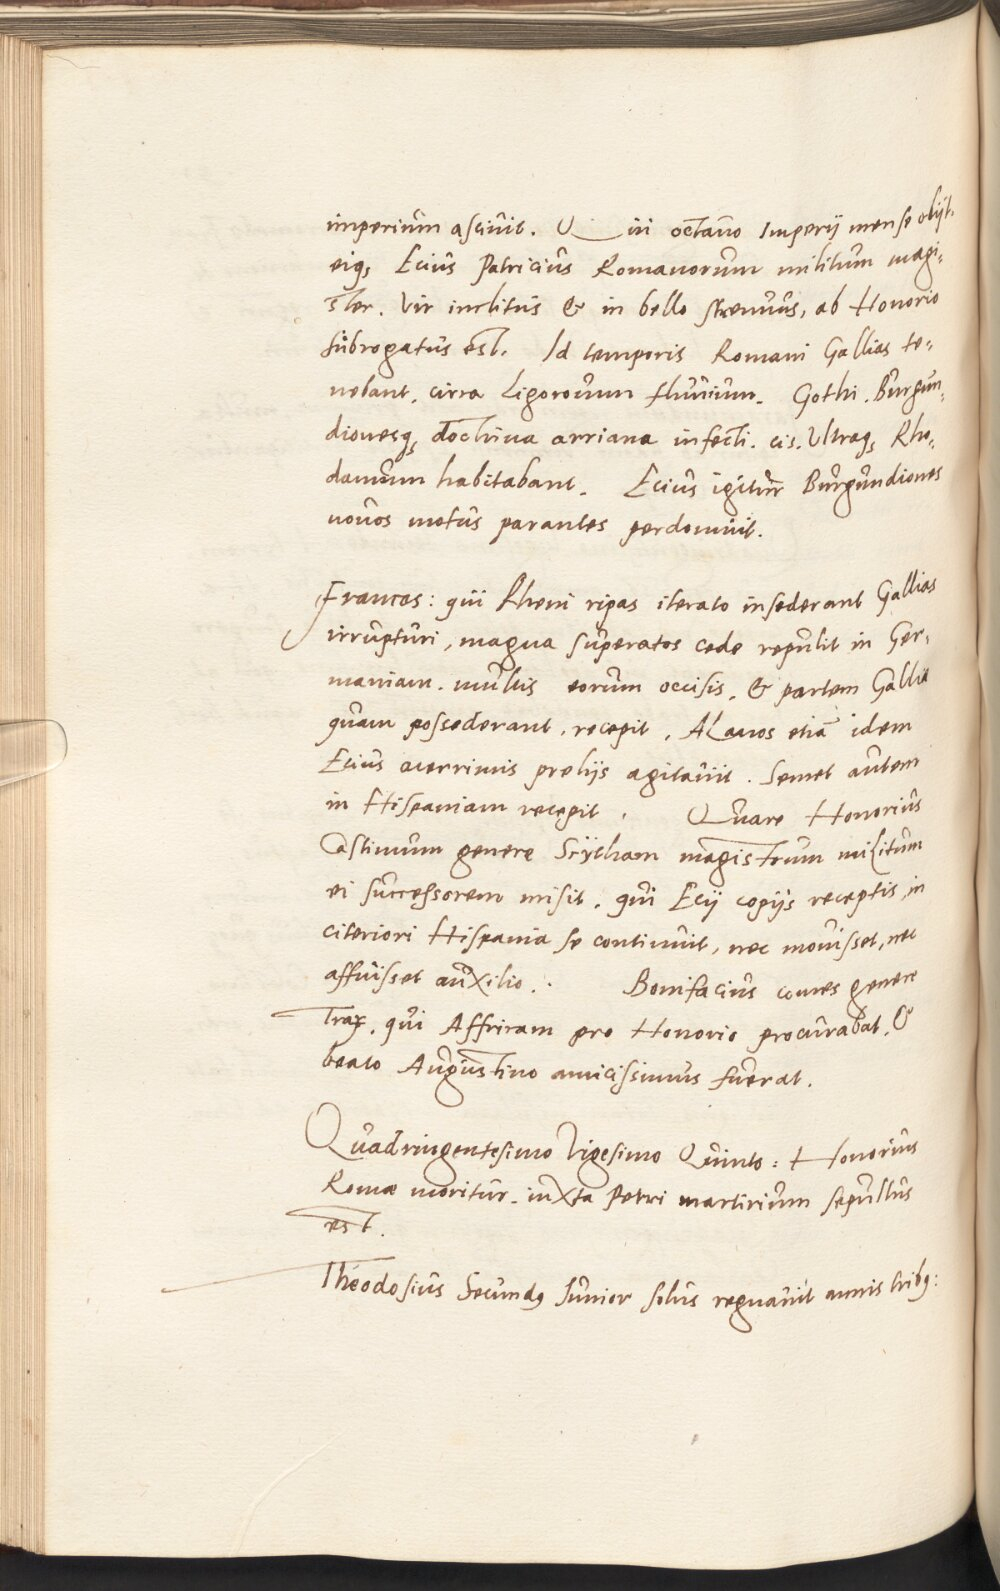 imperium asciuit. Qui in octauo Imperij mense obijt.
eiq, Ecius Patricius Romanorum militum magi-
ster. Vir inclitus & in bello strenuus, ab Honorio
subrogatus est. Id temporis Romani Gallias te-
nebant. circa Ligororum fluuium. Gothi. Burgun-
dionesq, doctrina arriana infecti. cis. Vltraq, Rho-
danum habitabant. Ecius igitur Burgundiones
nouos motus parantes perdomuit.
Francos: qui Rheni ripas iterato insederant Gallias
irrupturi, magna superatos cede repulit in Ger-
maniam. multis eorum occisis. & partem Gallie
quam possederant, recepit. Alanos etiā idem
Ecius acerrimis prelijs agitauit. Semet autem
in Hispaniam recepit. Quare Honorius
Castinum genere Scÿtham magistrum militum
ei successorem misit. qui Ecij copijs receptis, in
citeriori Hispania se continuit, nec mouisset, nec
affuisset auxilio. Bonifacius comes genere
Trax, qui Affricam pro Honorio procurabat, &
beato Augustino amicissimus fuerat.
Quadringentesimo Vigesimo Quinto: Honorius
Romæ moritur. iuxta Petri martirium sepultus
est.
Theodosius Secundq Iunior solus regnauit annis tribq: